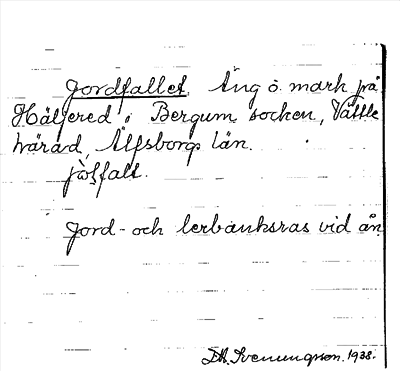 Jordfallet. Äng o. mark på
Häljered i Bergum socken, Vättle
härad, Älfsborgs län.
Jord- och lerbanksras vid ån
Svenungsson. 1938.